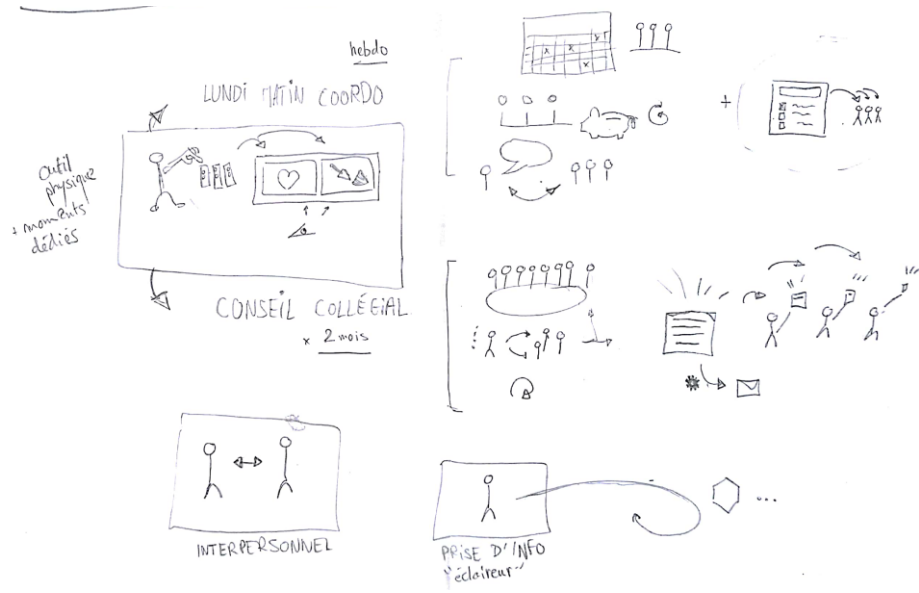 hebdo
LUNDI MATIN COORDO
outil
physique
+ moments
dédiés
CONSEIL COLLÉGIAL
x 2 mois
INTERPERSONNEL
PRISE D'INFO
"éclaireur"